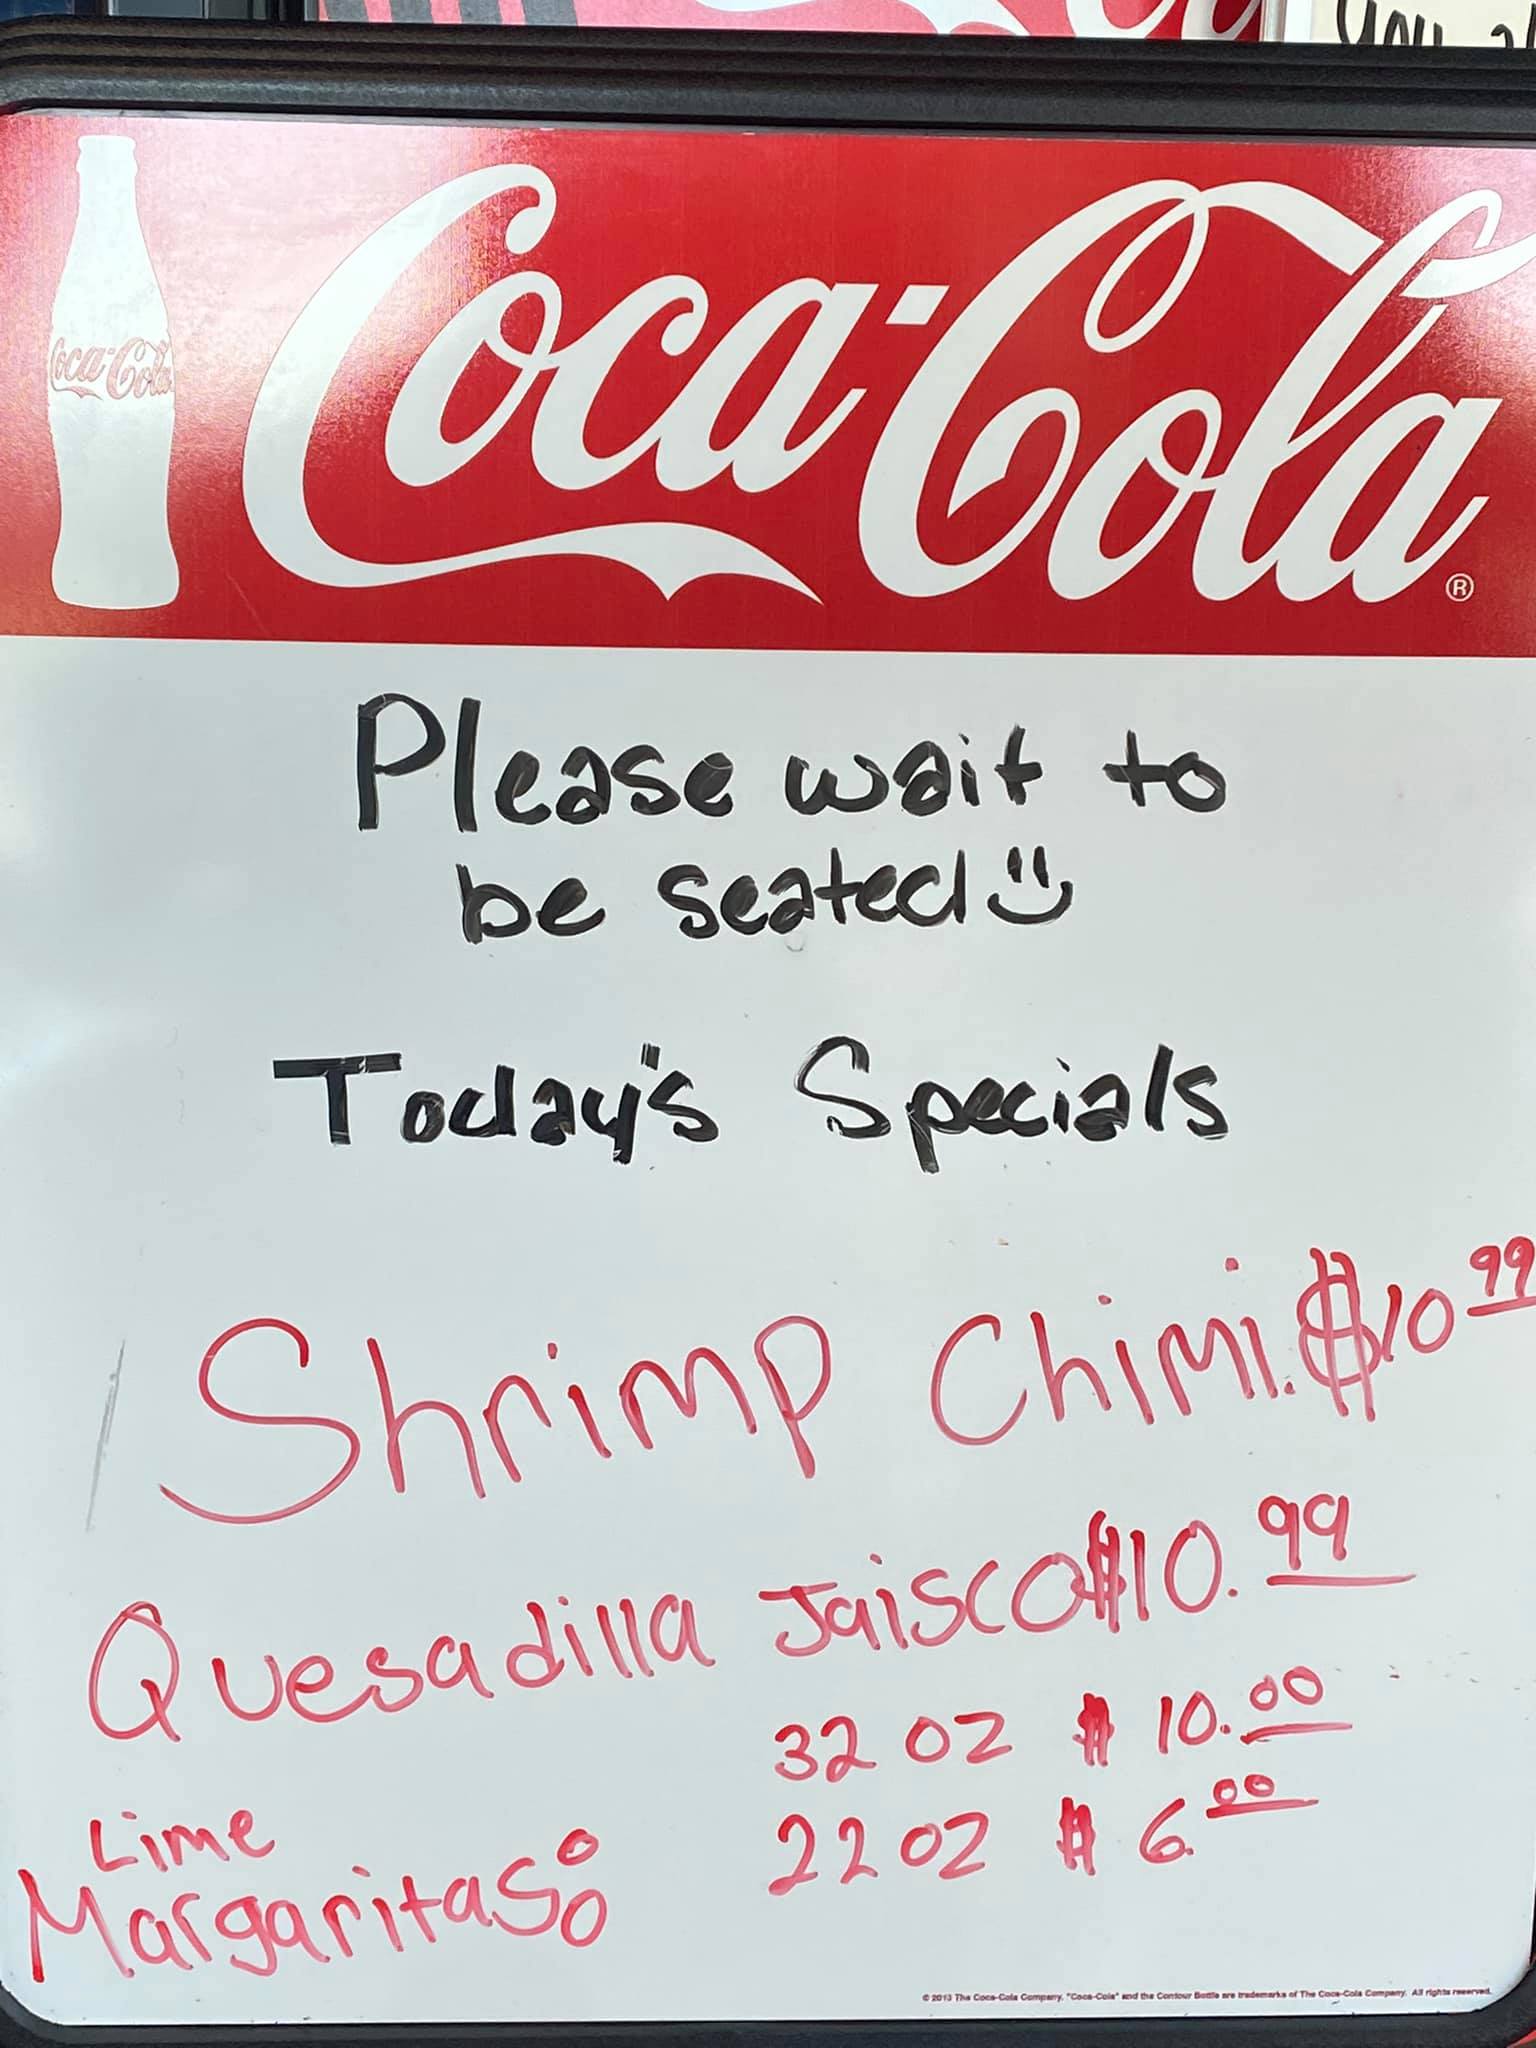 you
Coca-Cola
Coca-Cola ®
Please wait to
be seated
Today's Specials
Shrimp Chimi. $10 99
Quesadilla Jaisco $10. 99
32 oz $ 10. 00
22 oz $ 6. 00
Lime
Margaritas:
© 2013 The Coca-Cola Company. "Coca-Cola" and the Contour Bottle are trademarks of The Coca-Cola Company. All rights reserved.